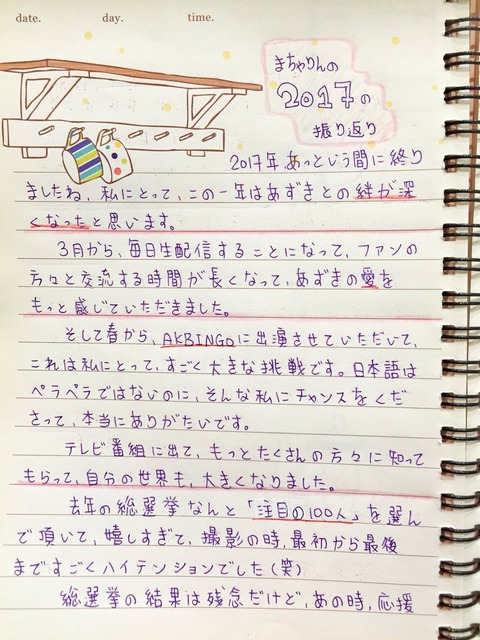 date. day. time.
まちゃりんの
2017の
振り返り
2017年あっという間に終り
ましたね、私にとって、この一年はあずきとの絆が深
くなったと思います。
3月から、毎日生配信することになって、ファンの
方々と交流する時間が長くなって、あずきの愛を
もっと感じていただきました。
そして春から、AKBINGOに出演させていただいて、
これは私にとって、すごく大きな挑戦です。日本語は
ペラペラではないのに、そんな私にチャンスをくだ
さって、本当にありがたいです。
テレビ番組に出て、もっとたくさんの方々に知って
もらって、自分の世界も、大きくなりました。
去年の総選挙なんと「注目の100人」を選ん
で頂いて、嬉しすぎて、撮影の時、最初から最後
まですごくハイテンションでした(笑)
総選挙の結果は残念だけど、あの時、応援